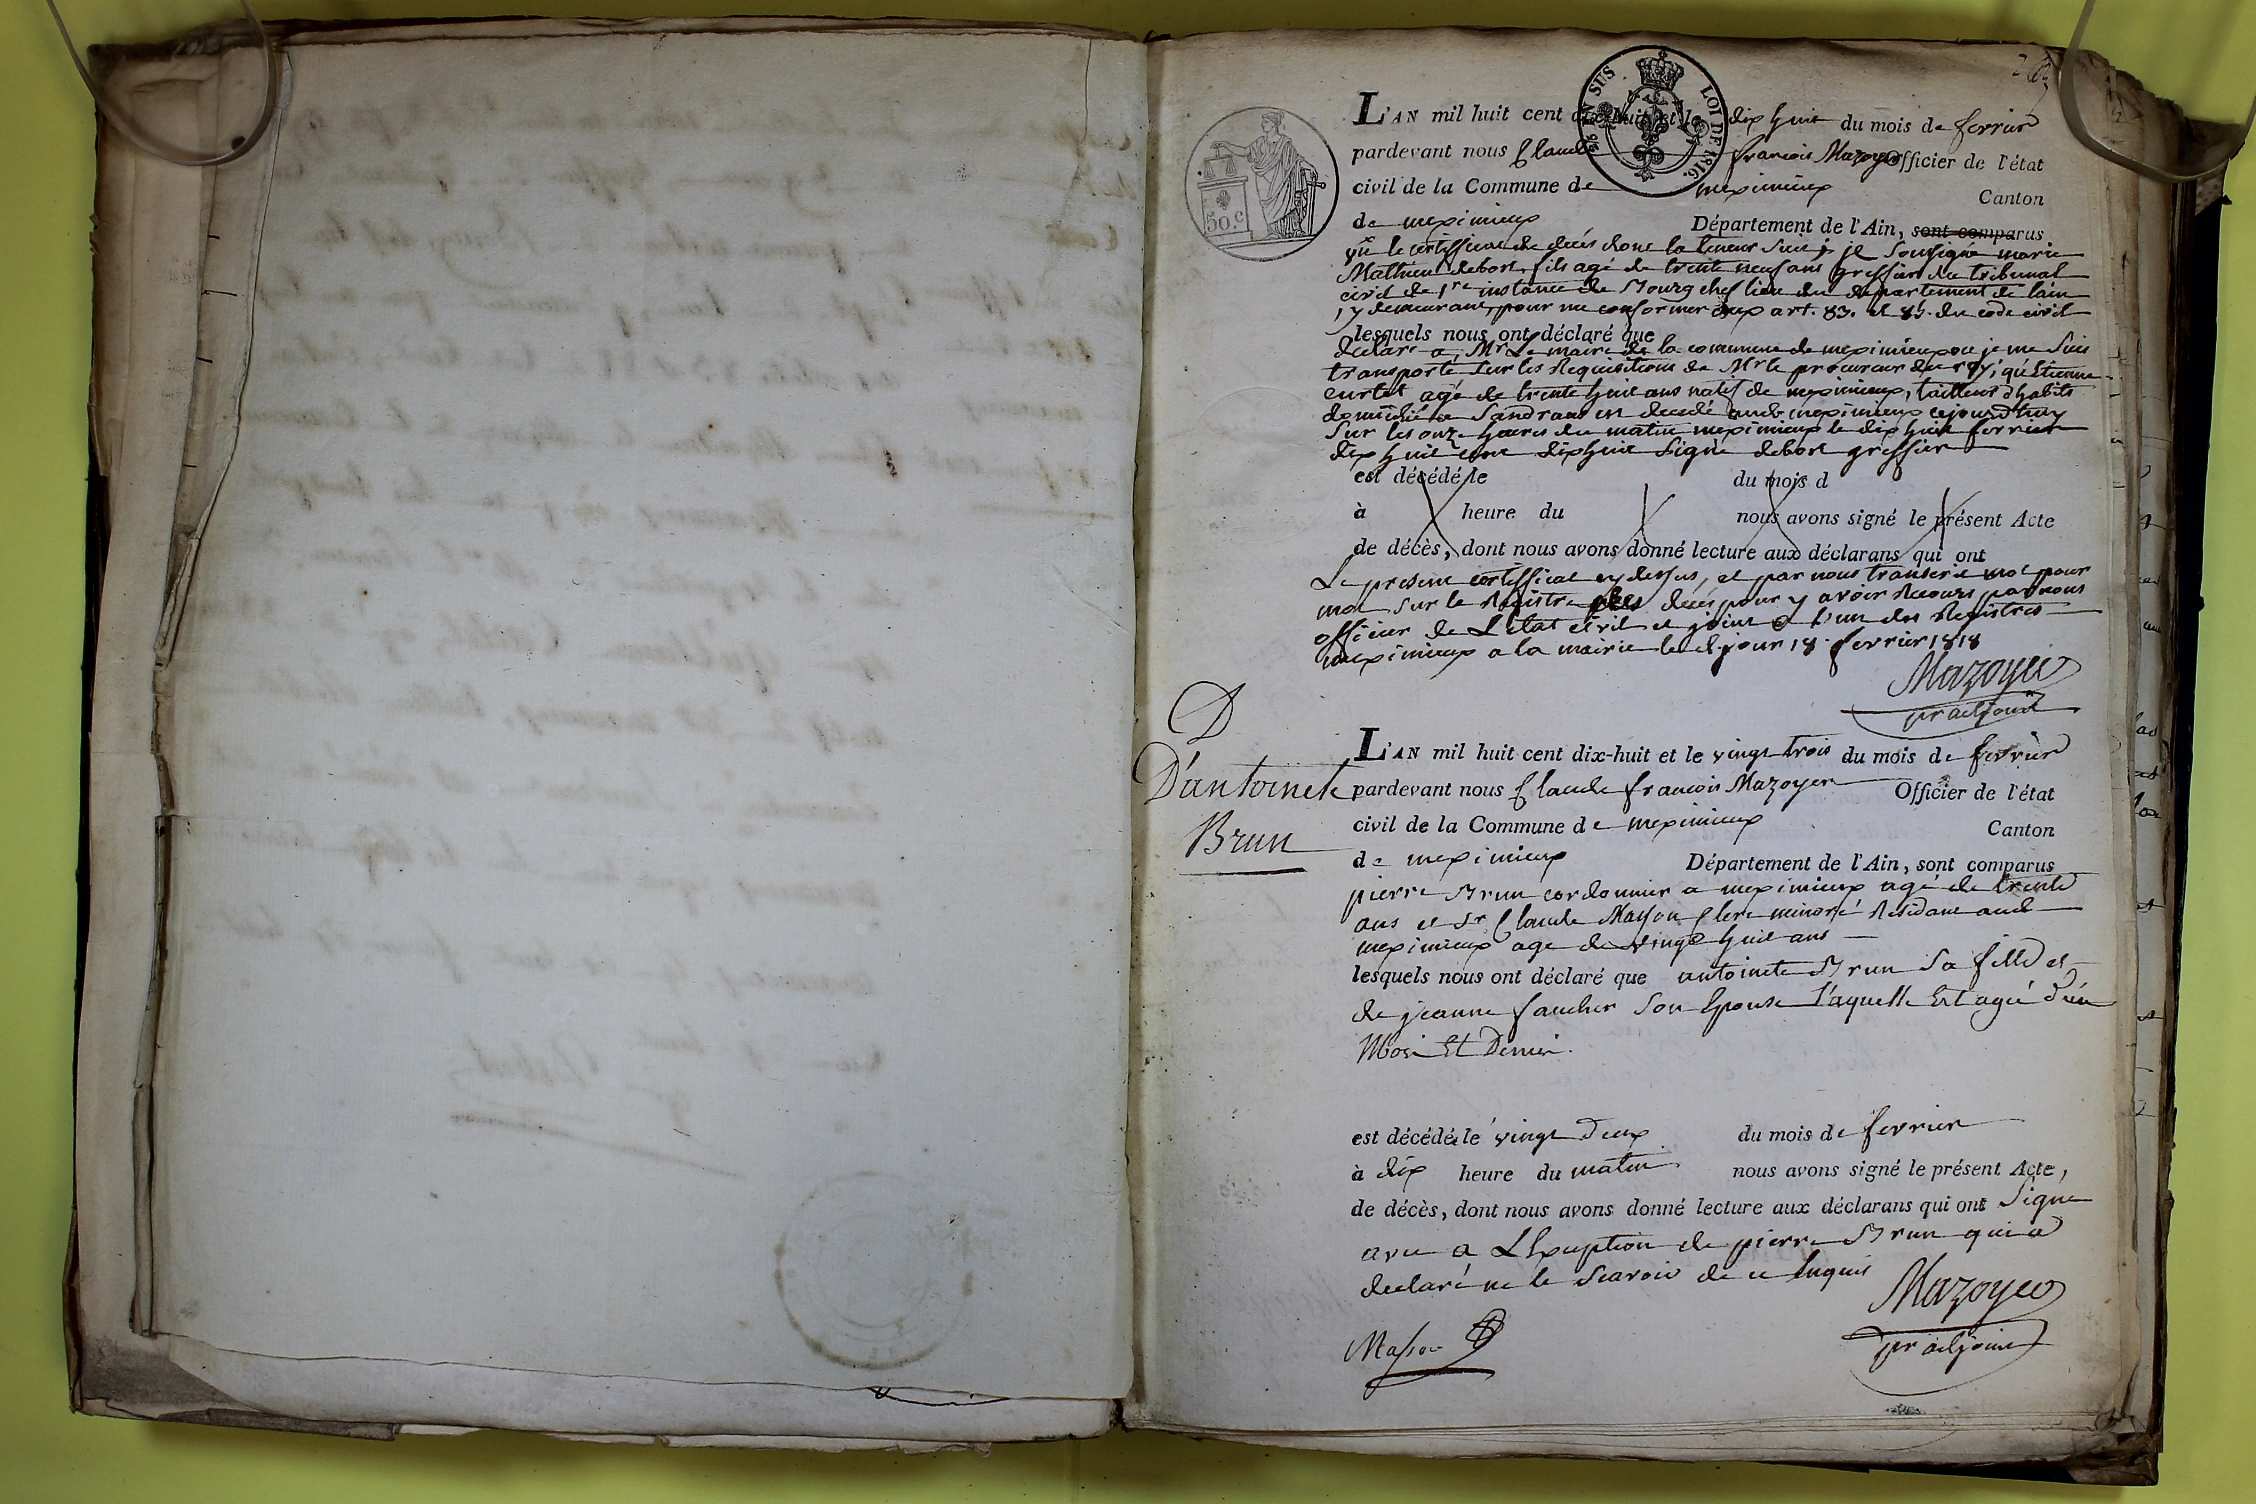 25 EN SUS
LOI DE 1816.
50.c
L'AN mil huit cent dix-huit et le dix huit du mois de fevrier
pardevant nous Claude francois Mazoyer Officier de l'état
civil de la Commune de meximieux Canton
de meximieux Département de l'Ain, sont comparus
vû le certifficat de decés dont la teneur suit; je soussigné marie
Mathieu debost fils agé de trente neuf ans greffier du tribunal
civil de 1re instance de Bourg chef lieu du departement de lain
, y demeurant, pour me conformer aux art. 83. et 85. du code civil
lesquels nous ont déclaré que
declare a Mr Le maire de la commune de meximieux ou je me suis
transporté sur les Requisitions de Mr le procureur du roy, qu'Etienne
curtet agé de trente huit ans natif de meximieux, tailleur d'habits
domicilié a Sandrans est decedé audt meximieux cejourd'huy
sur les onze heures du matin meximieux le dix huit fevrier
dix huit cent dix huit signé debost greffier
est décédé le du mois d
à heure du nous avons signé le présent Acte
de décès, dont nous avons donné lecture aux déclarans qui ont
Le present certifficat cy dessus, et par nous transcrit mot pour
mot sur le Registre des decés pour y avoir Recours par nous
officier de L'etat civil et joint a l'un des Registres
meximieux a la mairie le d. jour 18 fevrier 1818
Mazoyer
pr adjoint
D
D'antoinete
Brun
L'AN mil huit cent dix-huit et le vingt trois du mois de fevrier
pardevant nous Claude francois Mazoyer Officier de l'état
civil de la Commune de meximieux Canton
de meximieux Département de l'Ain, sont comparus
pierre Brun cordonnier a meximieux agé de trente
ans et Sr Claude Masson Clerc minoré Residant audt
meximieux age de vingt huit ans
lesquels nous ont déclaré que antoinete Brun sa fille et
de jeanne faucher son Epouse l'aquelle Est agée d'un
Mois Et Demi.
est décédée le vingt deux du mois de fevrier
à dix heure du matin nous avons signé le présent Acte,
de décès, dont nous avons donné lecture aux déclarans qui ont signé
avec a LExeption de pierre Brun qui a
declaré ne le scavoir de ce Enquis
Mazoyer
pr adjoint
Masson